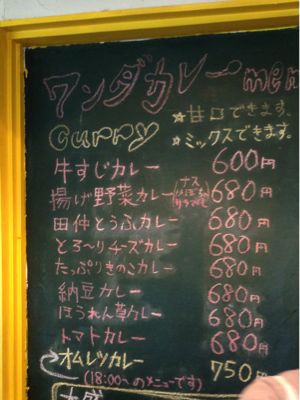 ワンダカレー menu
☆甘口できます。
Curry
☆ミックスできます。
牛すじカレー 600円
揚げ野菜カレー ナス 680円
田仲とうふカレー 680円
とろ〜りチーズカレー 680円
たっぷりきのこカレー 680円
納豆カレー 680円
ほうれん草カレー 680円
トマトカレー 680円
オムレツカレー 750円
(18:00〜のメニューです)
大盛